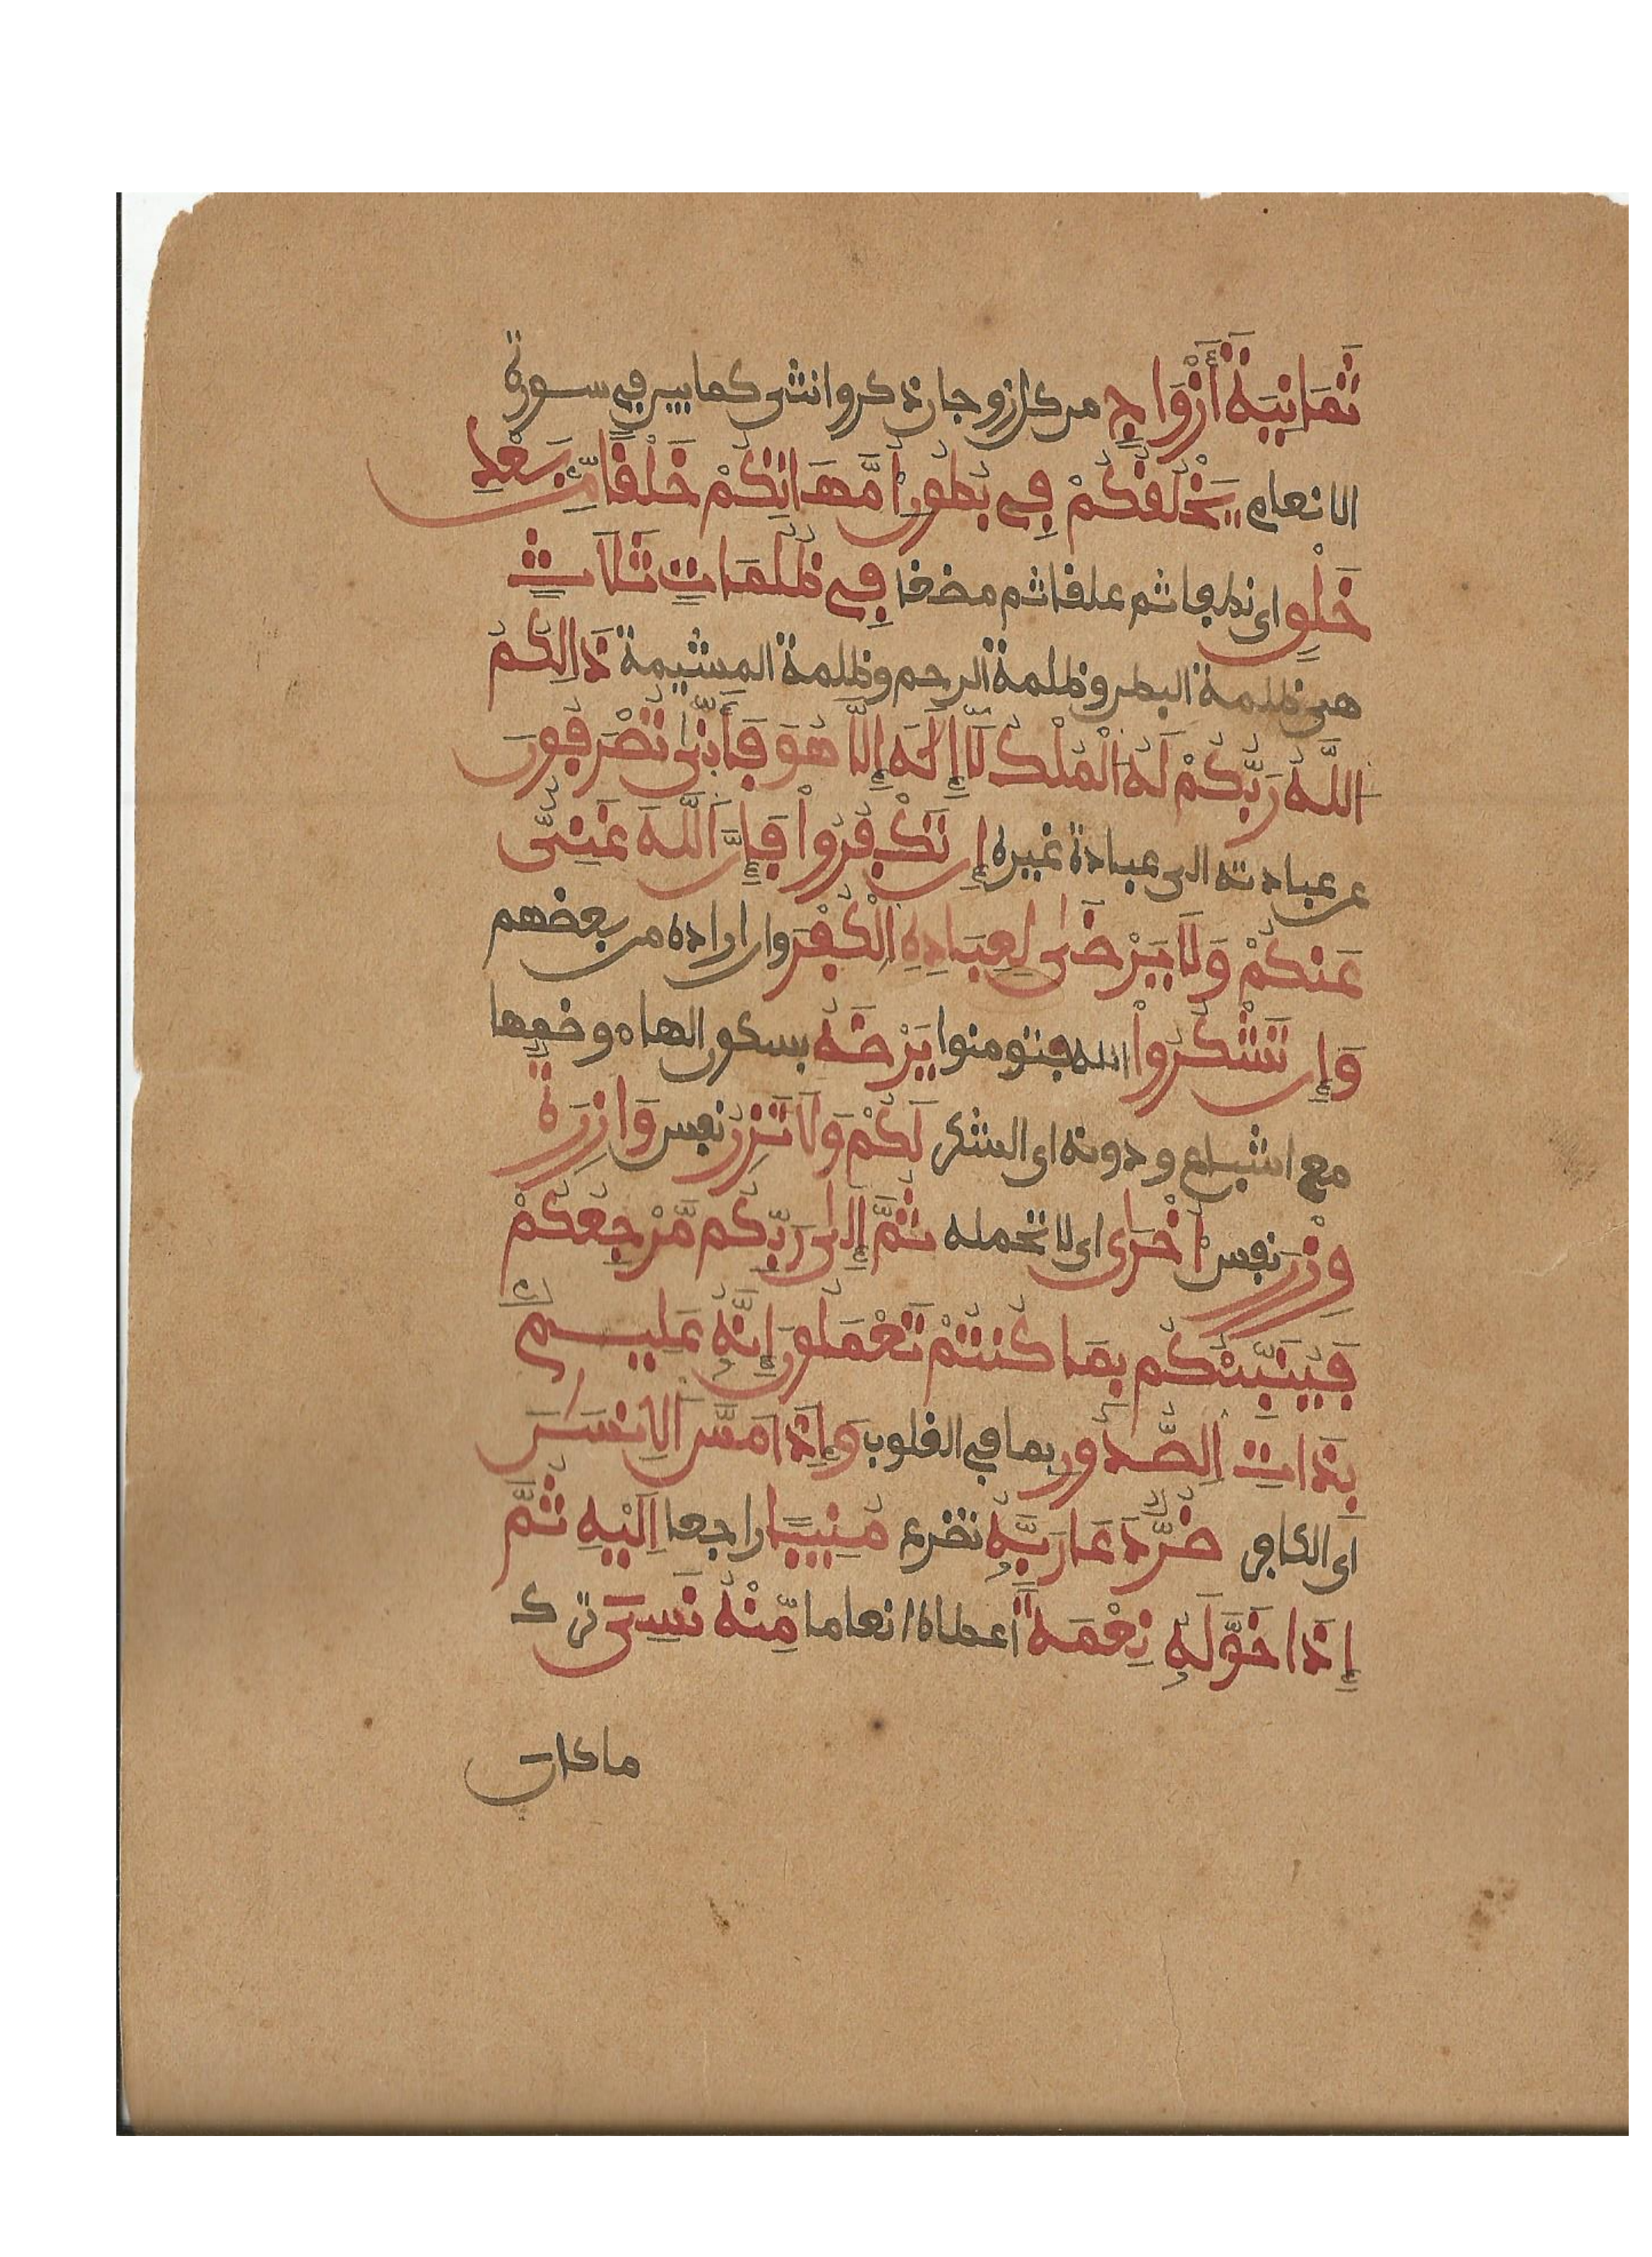 ثَمَانِيَةَ أَزْوَاجٍ من كل زوجان ذكر وانثى كما بين في سورة
الانعام يَخْلُقُكُمْ فِي بُطُونِ أُمَّهَاتِكُمْ خَلْقًا مِّنۢ بَعْدِ
خَلْقٍ اى نطفا ثم علقا ثم مضغا فِي ظُلُمَاتٍ ثَلَاثٍ
هى ظلمة البطن وظلمة الرحم وظلمة المشيمة ذَالِكُمُ
اللَّهُ رَبُّكُمْ لَهُ الْمُلْكُ لَا إِلَٰهَ إِلَّا هُوَ فَأَنَّىٰ تُصْرَفُونَ
عن عبادته الى عبادة غيره إِن تَكْفُرُواْ فَإِنَّ اللَّهَ غَنِىٌّ
عَنكُمْ وَلَا يَرْضَىٰ لِعِبَادِهِ الْكُفْرَ وان اراده من بعضهم
وَإِن تَشْكُرُواْ الله فتومنوا يَرْضَهُ بسكون الهاء وضمها
مع اشباع ودونه اى الشكر لَكُمْ وَلَا تَزِرُ نفس وَازِرَةٌ
وِزْرَ نفس أُخْرَىٰ اى لا تحمله ثُمَّ إِلَىٰ رَبِّكُم مَّرْجِعُكُمْ
فَيُنَبِّئُكُم بِمَا كُنتُمْ تَعْمَلُونَ إِنَّهُ عَلِيمٌ
بِذَاتِ الصُّدُورِ بما في القلوب وَإِذَا مَسَّ الْإِنسَنَ
اى الكافر ضُرٌّ دَعَا رَبَّهُ تضرع مُنِيبًا راجعا إِلَيْهِ ثُمَّ
إِذَا خَوَّلَهُ نِعْمَةً أعطاه انعاما مِّنْهُ نَسِىَ ترك
ما كان